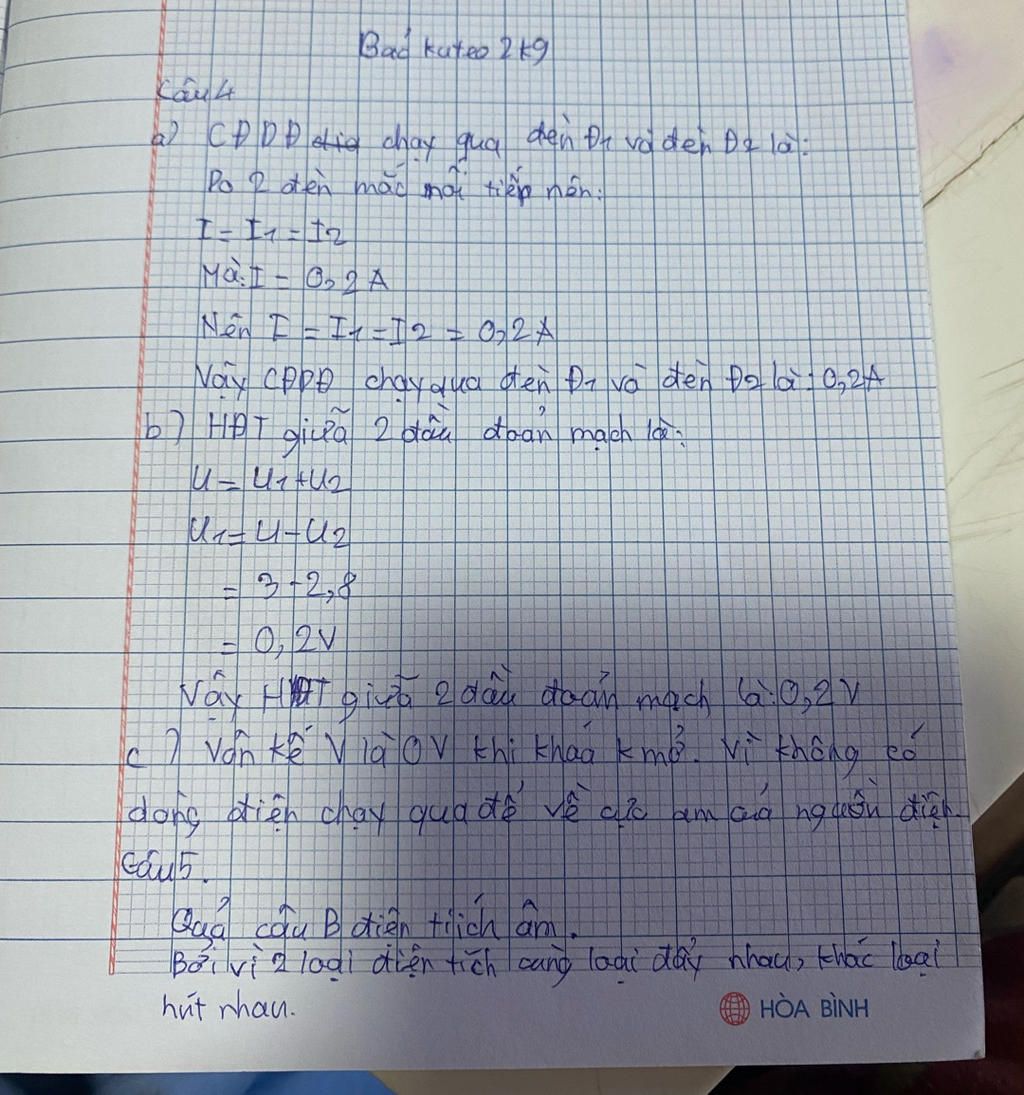 Bảo kuteo 2k9
Câu 4
a) CĐDĐ chạy qua đèn Đ1 và đèn Đ2 là:
Do 2 đèn mắc nối tiếp nên:
I = I1 = I2
Mà: I = 0,2A
Nên I = I1 = I2 = 0,2A
Vậy CĐDĐ chạy qua đèn Đ1 và đèn Đ2 là: 0,2A
b) HĐT giữa 2 đầu đoản mạch là:
U = U1 + U2
U1 = U - U2
= 3 - 2,8
= 0,2V
Vậy HĐT giữa 2 đầu đoản mạch là: 0,2V
c) Vôn kế V là 0V khi khoá k mở. Vì không có
dòng điện chạy qua để về cực âm củả nguồn điện.
Câu 5.
Quả cầu B điện tiích âm.
Bởi vì 2 loại điện tích cùng loại đẩy nhau, khác loại
hút nhau.
HÒA BÌNH